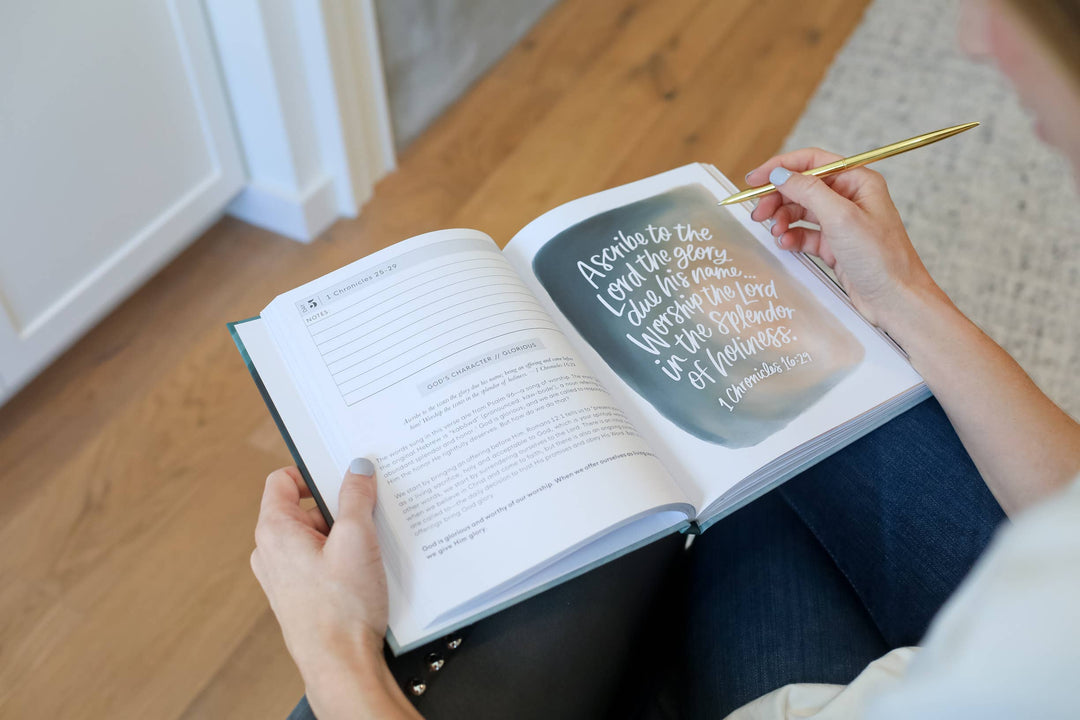 DAY 5 1 Chronicles 25-29
NOTES:
GOD'S CHARACTER // GLORIOUS
Ascribe to the LORD the glory due his name; bring an offering and come before
him! Worship the LORD in the splendor of holiness. - 1 Chronicles 16:29
The words sung in this verse are from Psalm 96—a song of worship. The
the original Hebrew is "kabowd" (pronounced: kaw-bode'), a noun
abundant splendor and honor - God is glorious, and we are called to
Him the honor He rightfully deserves. But how do we do that?
We start by bringing an offering before Him. Romans 12:1 tells us to
as a living sacrifice, holy and acceptable to God, which is your spiritual
other words, we start by surrendering ourselves to the Lord. There is an
when we believe in Christ and come to faith, but there is also an ongoing
are called to—the daily decision to trust His promises and obey His Word.
offerings bring God glory.
God is glorious and worthy of our worship. When we offer ourselves as
we give Him glory.
Ascribe to the
Lord the glory
due his name...
Worship the Lord
in the splendor
of holiness.
1 Chronicles 16:29